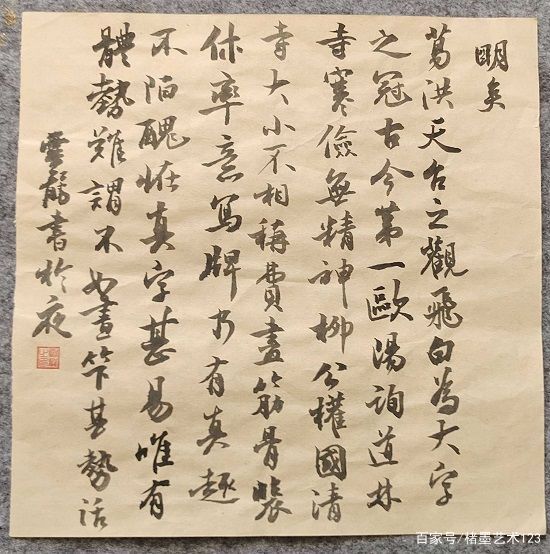 明矣
葛洪天台之觀飛白為大字
之冠古今第一歐陽詢道林
寺寒儉無精神柳公權國清
寺大小不相稱費盡筋骨裴
休率意寫牌乃有真趣
不陷醜怪真字甚易唯有
體勢難謂不如畫笇其勢活
雲龍書於夜
百家号/楮墨艺术123